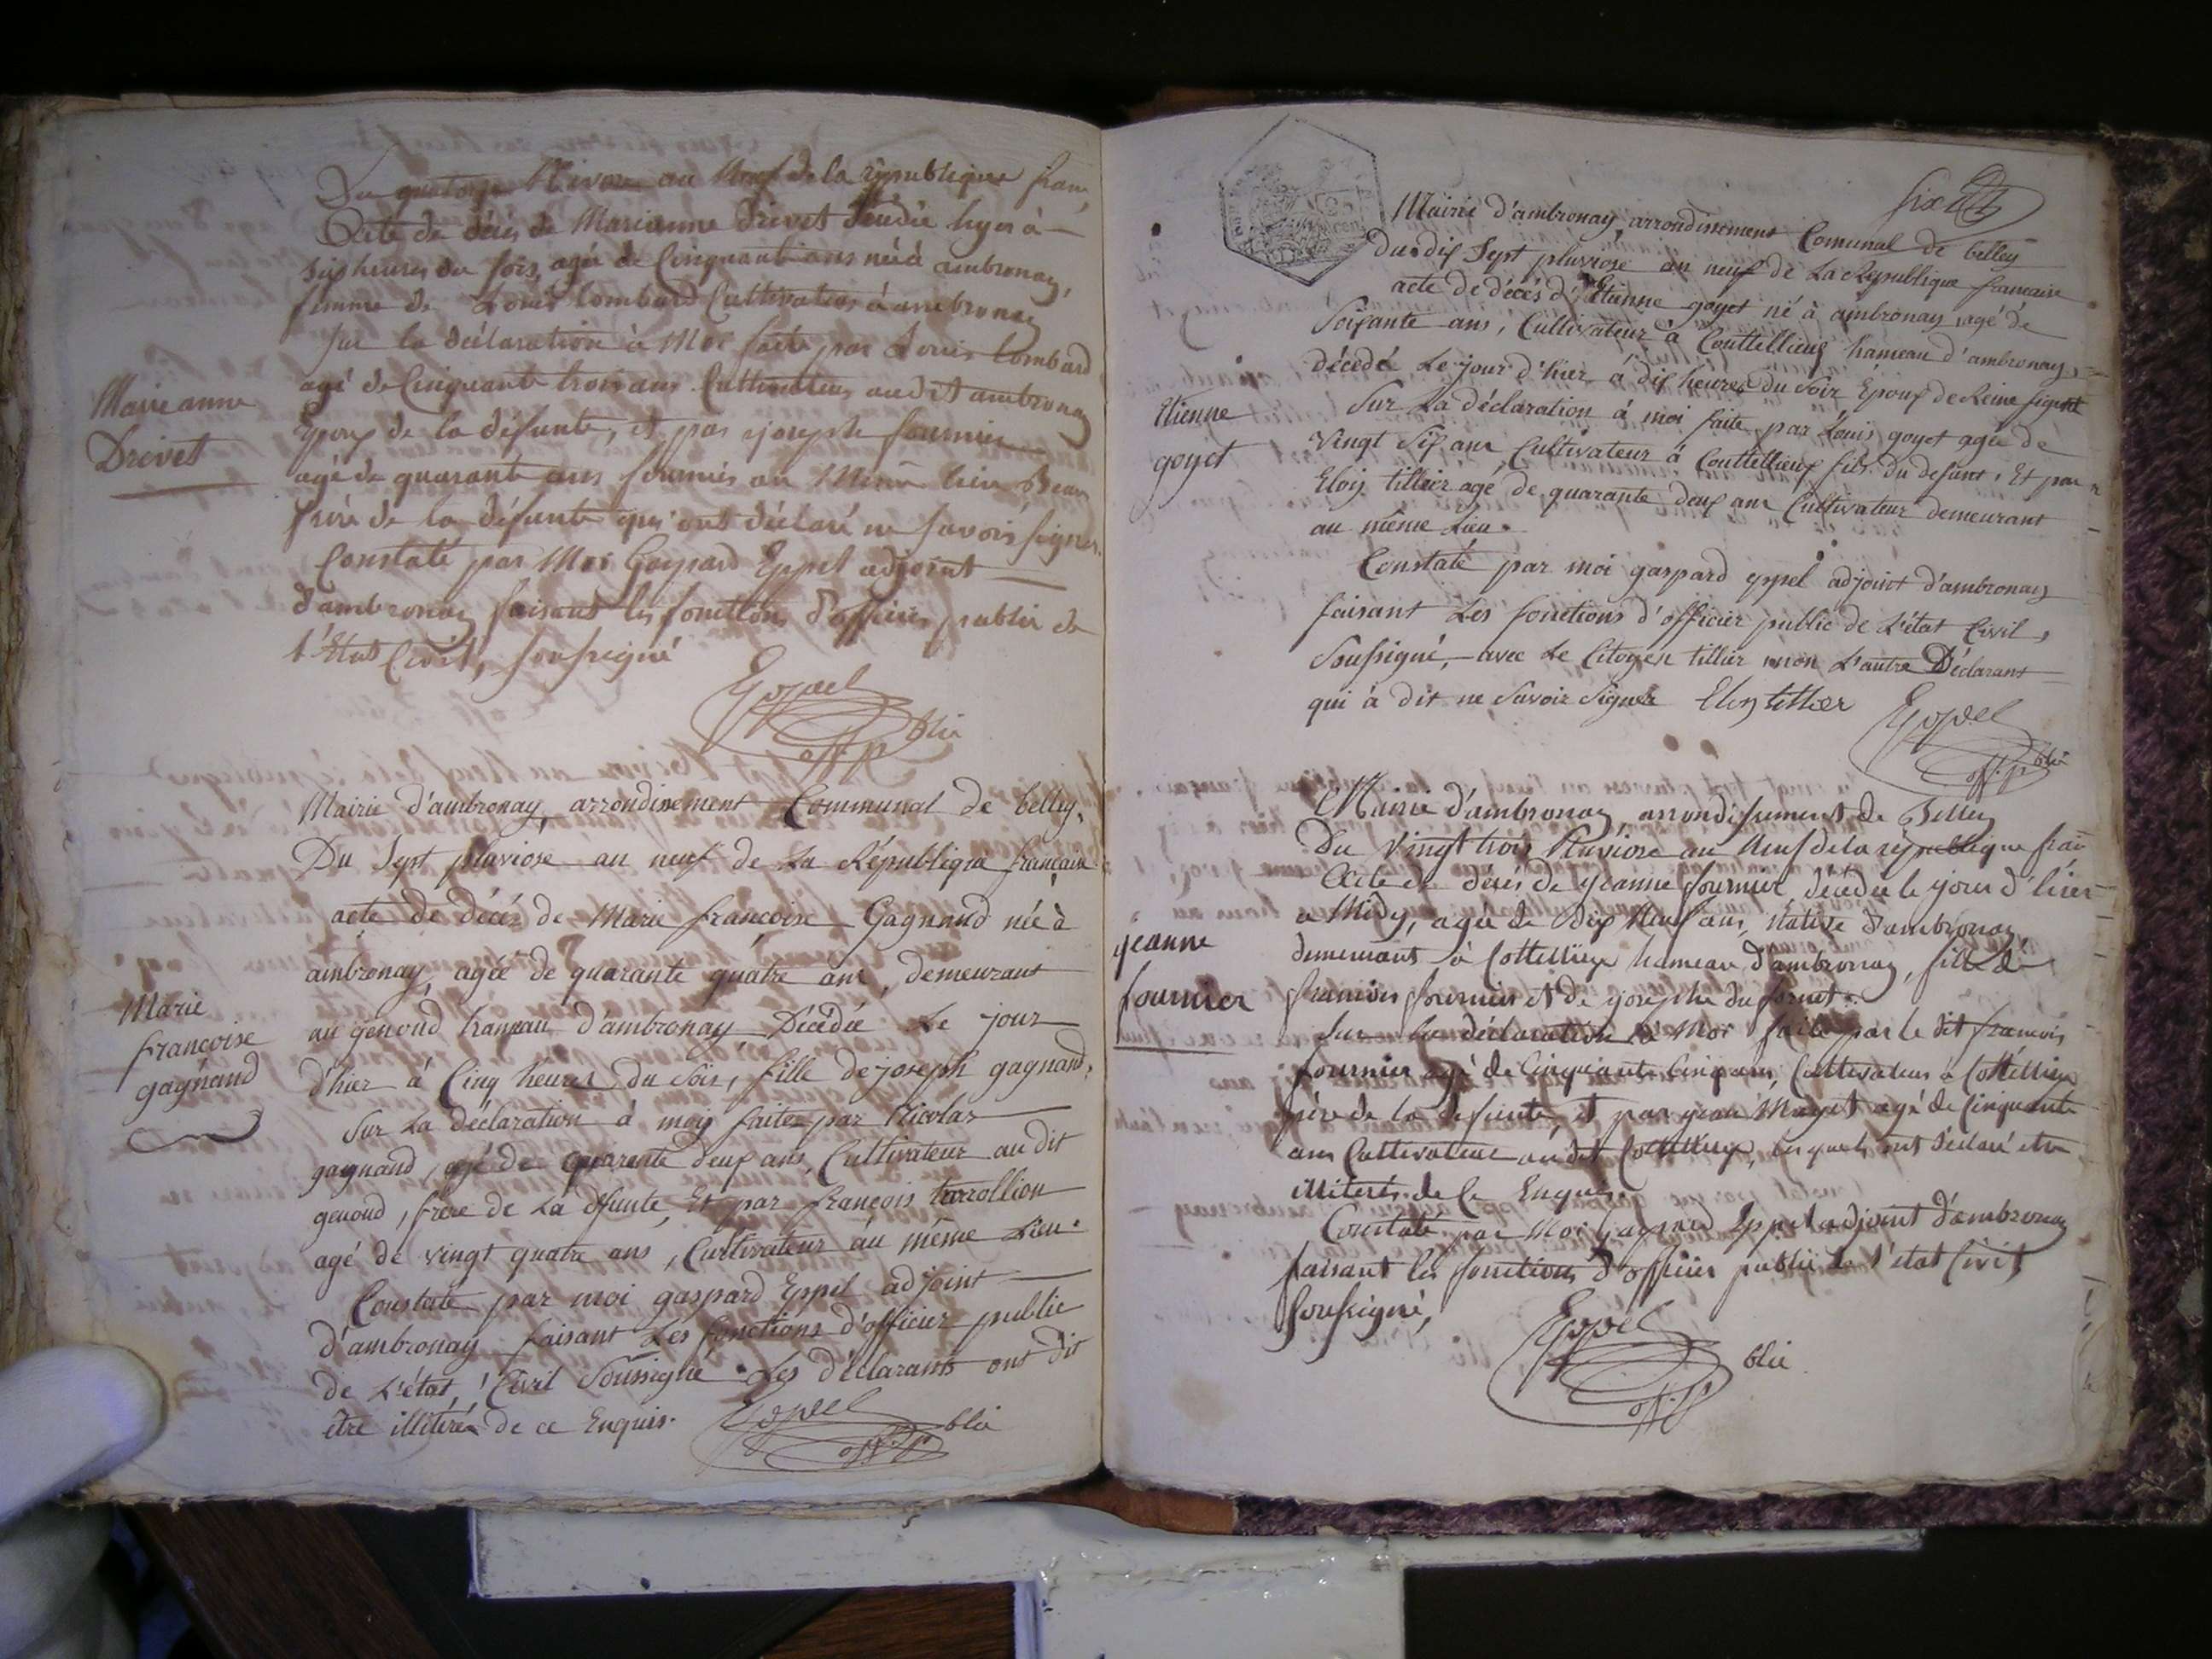 Du quatorze Nivose an Neuf de la république franc
Acte de décès de Marianne Drivet décédée hyer à
six heures du soir, agée de Cinquante ans née à ambronay,
femme de Louis lombard Cultivateur à ambronay
Sur la déclaration à Moi faite par Louis lombard
agé de Cinquante trois ans Cultivateur audit ambronay
Epoux de la défunte, et par joseph fournier
agé de quarante ans fournier au Même lieu Beau
frère de la défunte qui ont déclaré ne savoir signer.
Constaté par Moi Gaspard Eppel adjoint
d'ambronay faisant les fonctions d'officier public de
l'État Civil, soussigné
Eppel
off. p blic
Marie anne
Drivet
Mairie d'ambronay, arrondissement Communal de belley.
Du Sept pluviose an neuf de La République francaise
acte de décès de Marie françoise Gagnand née à
ambronay, agée de quarante quatre ans, demeurant
au genoud hameau d'ambronay, Décédée Le jour
d'hier à Cinq heures du Soir, fille de joseph gagnand,
Sur La déclaration à moy faite par Nicolas
gagnand, agé de quarente deux ans, Cultivateur au dit
genoud, frère de La dfunte, Et par françois
agé de vingt quatre ans, Cultivateur au même Lieu.
Constaté par moi gaspard Eppel adjoint
d'ambronay faisant Les fonctions d'officier public
de L'état, Civil Soussigné. Les d'éclarants ont dit
être illitérés de ce Enquis.
Eppel
off. p blic
Marie
francoise
gagnand
six
Mairie d'ambronay, arrondissement Comunal de belley
Du dix Sept pluviose an neuf de La République francaise
acte de décès d'Etienne goyet né à ambronay, agé de
Soixante ans, Cultivateur à Couttellieux hameau d'ambronay,
décédé Le jour d'hier à dix heures du Soir Epoux de Reine
Sur La déclaration à moi faite par Louis goyet agée de
Vingt Six ans Cultivateur à Couttellieux fils du défunt, Et par
Eloy tillier agé de quarante deux ans Cultivateur demeurant
au même Lieu.
Constaté par moi gaspard eppel adjoint d'ambronay
faisant Les fonctions d'officier public de L'état Civil,
Soussigné, avec Le Citoyen tillier non L'autre Déclarant
qui à dit ne Savoir Signer Eloy tillier
Eppel
off. p blic
Etienne
goyet
Mairie d'ambronay, arrondissement de Belley
Du Vingt trois Pluviose an Neuf de la république fran
Acte de décès de jeanne fournier décédée le jour d'hier
a Midy, agée de Dix Neuf ans, Native d'ambronay
demeurant à Cottellieux hameau d'ambronay, fille de
francois fournier et de josephe dufornet.
Sur la déclaration à Moi faite par le dit francois
fournier agé de Cinquante Cinq ans, Cultivateur à Cottellieux
père de la défunte, et par jean Mayet agé de Cinquante
ans Cultivateur au dit Cottellieux, lesquels ont déclaré etre
illiterés de ce Enquis.
Constaté par Moi gaspard Eppel adjoint d'ambronay
faisant les fonctions d'officier public de l'état Civil
soussigné,
Eppel
off. p blic
jeanne
fournier